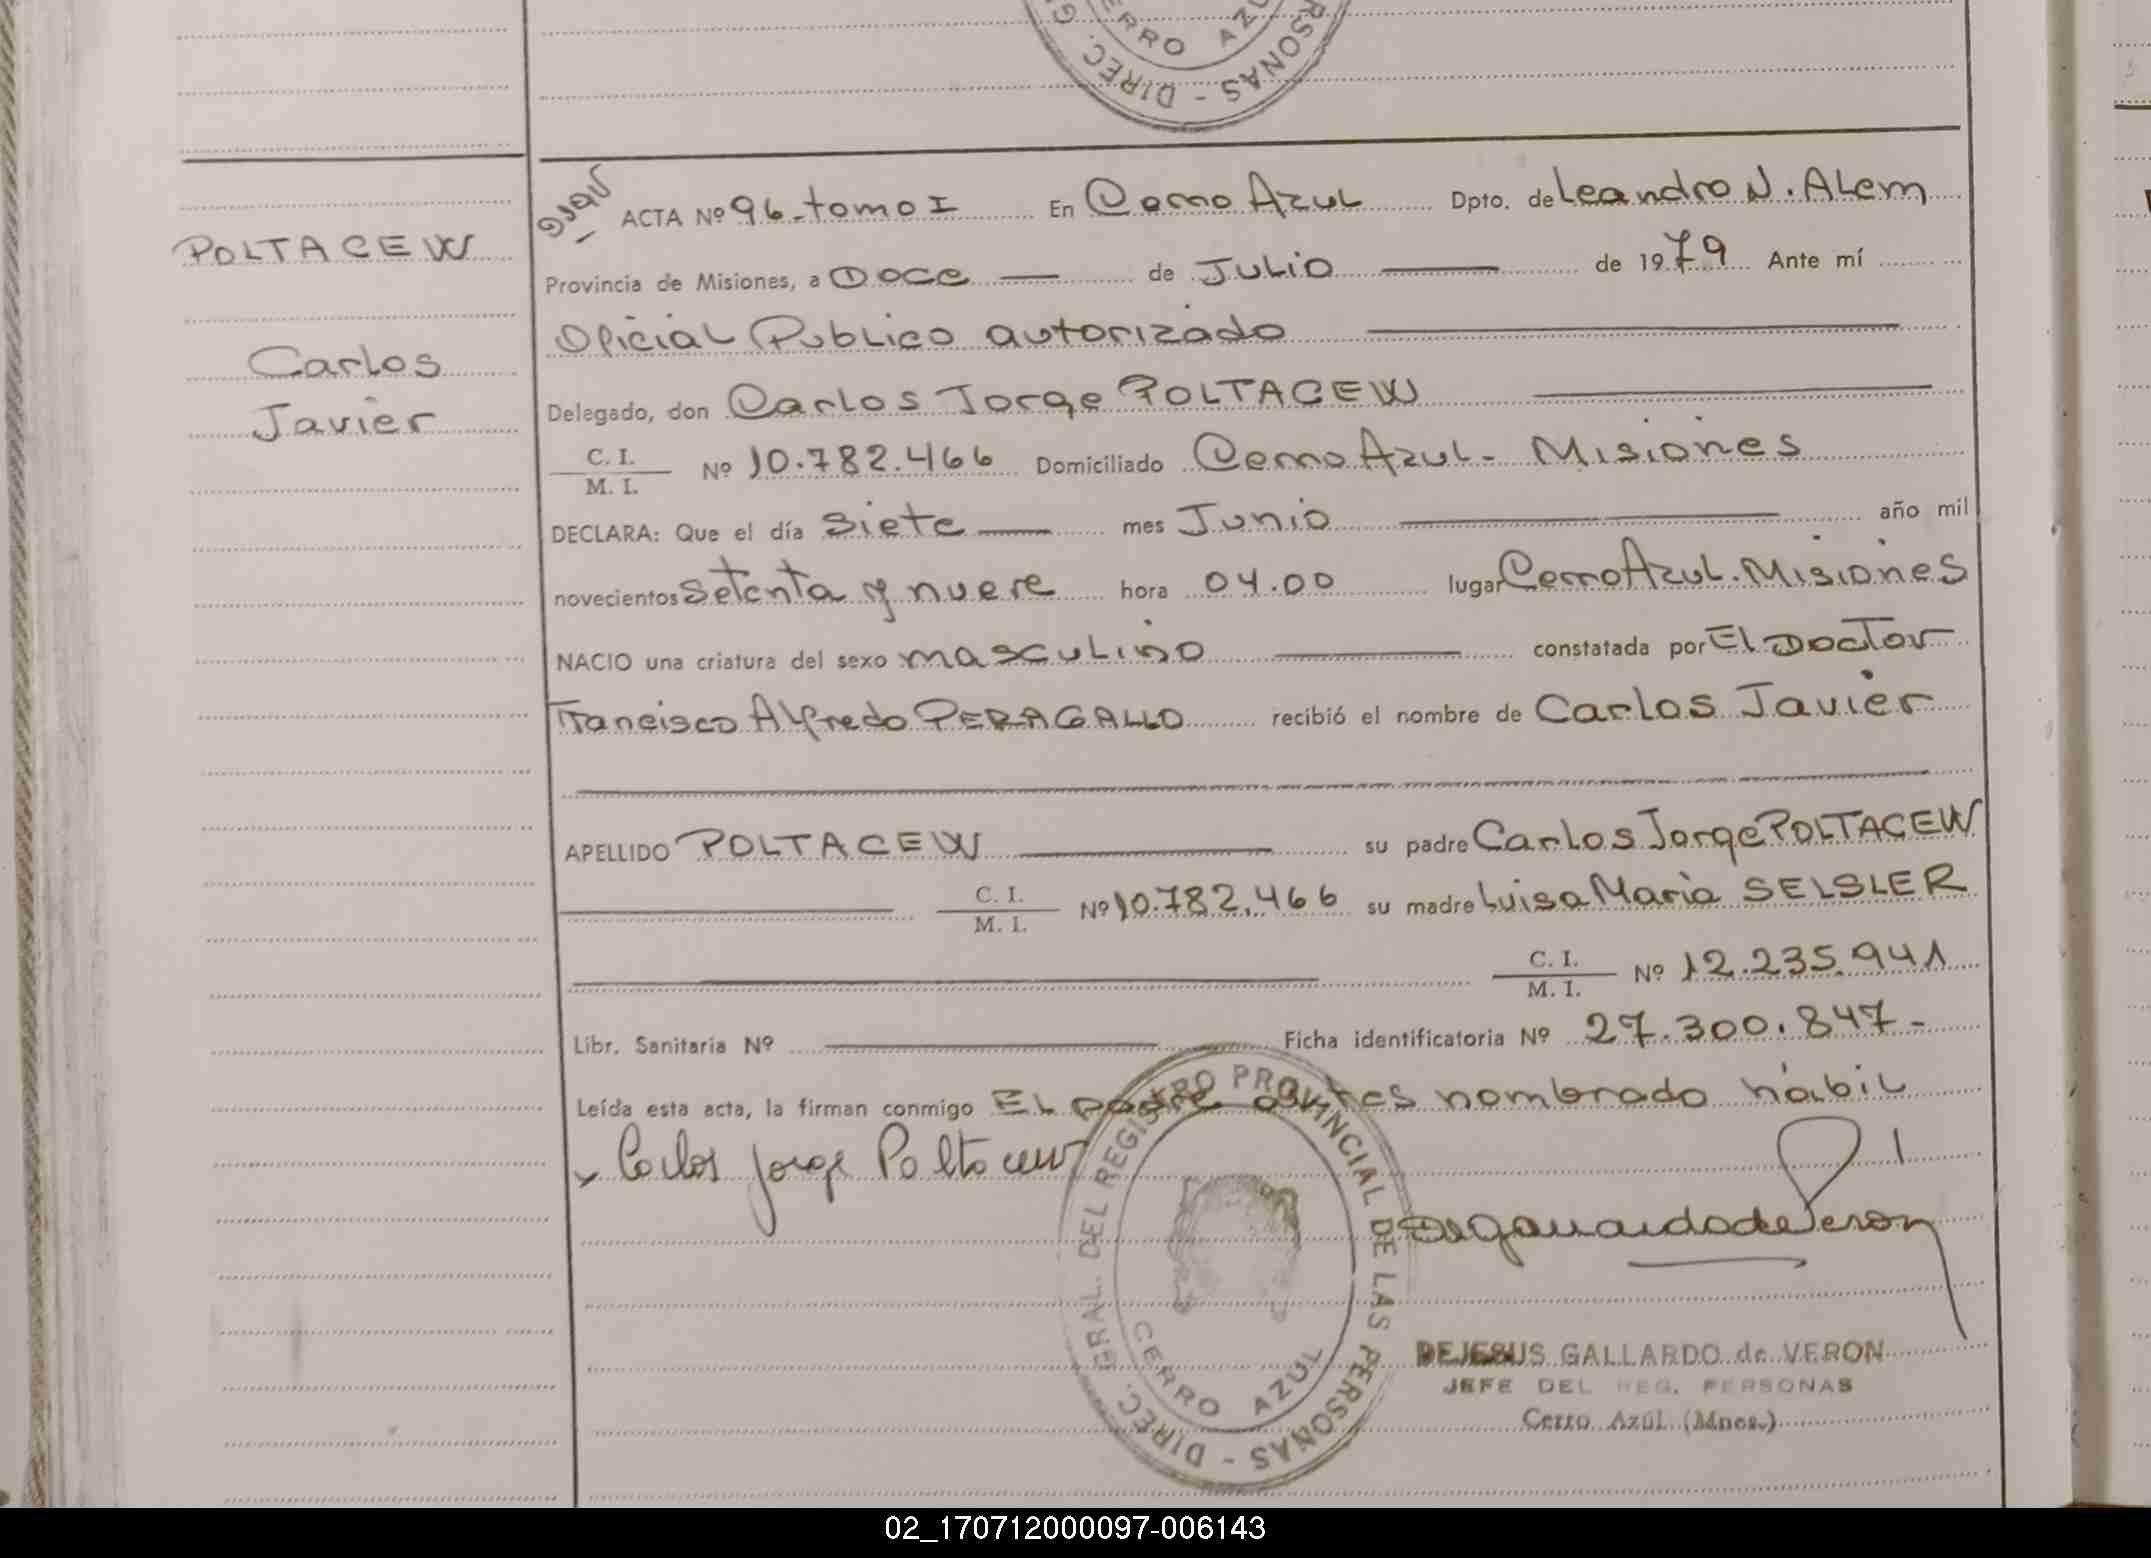 CERRO AZUL
DIREC. G
RSONAS
POLTACEW
Carlos
Javier
ACTA Nº 96-tomo I En Cerro Azul Dpto. de Leandro N. Alem
Provincia de Misiones, a Doce de Julio de 1979 Ante mí
Oficial Publico autorizado
Delegado, don Carlos Jorge POLTACEW
C. I.
M. I. Nº 10.782.466 Domiciliado Cerro Azul - Misiones
DECLARA: Que el día siete mes Junio año mil
novecientos setenta y nueve hora 04.00 lugar Cerro Azul. Misiones
NACIO una criatura del sexo masculino constatada por El Doctor
Francisco Alfredo PERAGALLO recibió el nombre de Carlos Javier
APELLIDO POLTACEW su padre Carlos Jorge POLTACEW
C. I.
M. I. Nº 10.782.466 su madre Luisa Maria SELSLER
C. I.
M. I. Nº 12.235.941
Libr. Sanitaria Nº Ficha identificatoria Nº 27.300.847-
Leída esta acta, la firman conmigo El padre antes nombrado hábil
Carlos Jorge Poltacew
DeJGallardodeVeron
DIREC. GRAL. DEL REGISTRO PROVINCIAL DE LAS PERSONAS -
CERRO AZUL
DEJESUS GALLARDO de VERON
JEFE DEL REG. PERSONAS
Cerro Azúl (Mnes.)
02_170712000097-006143